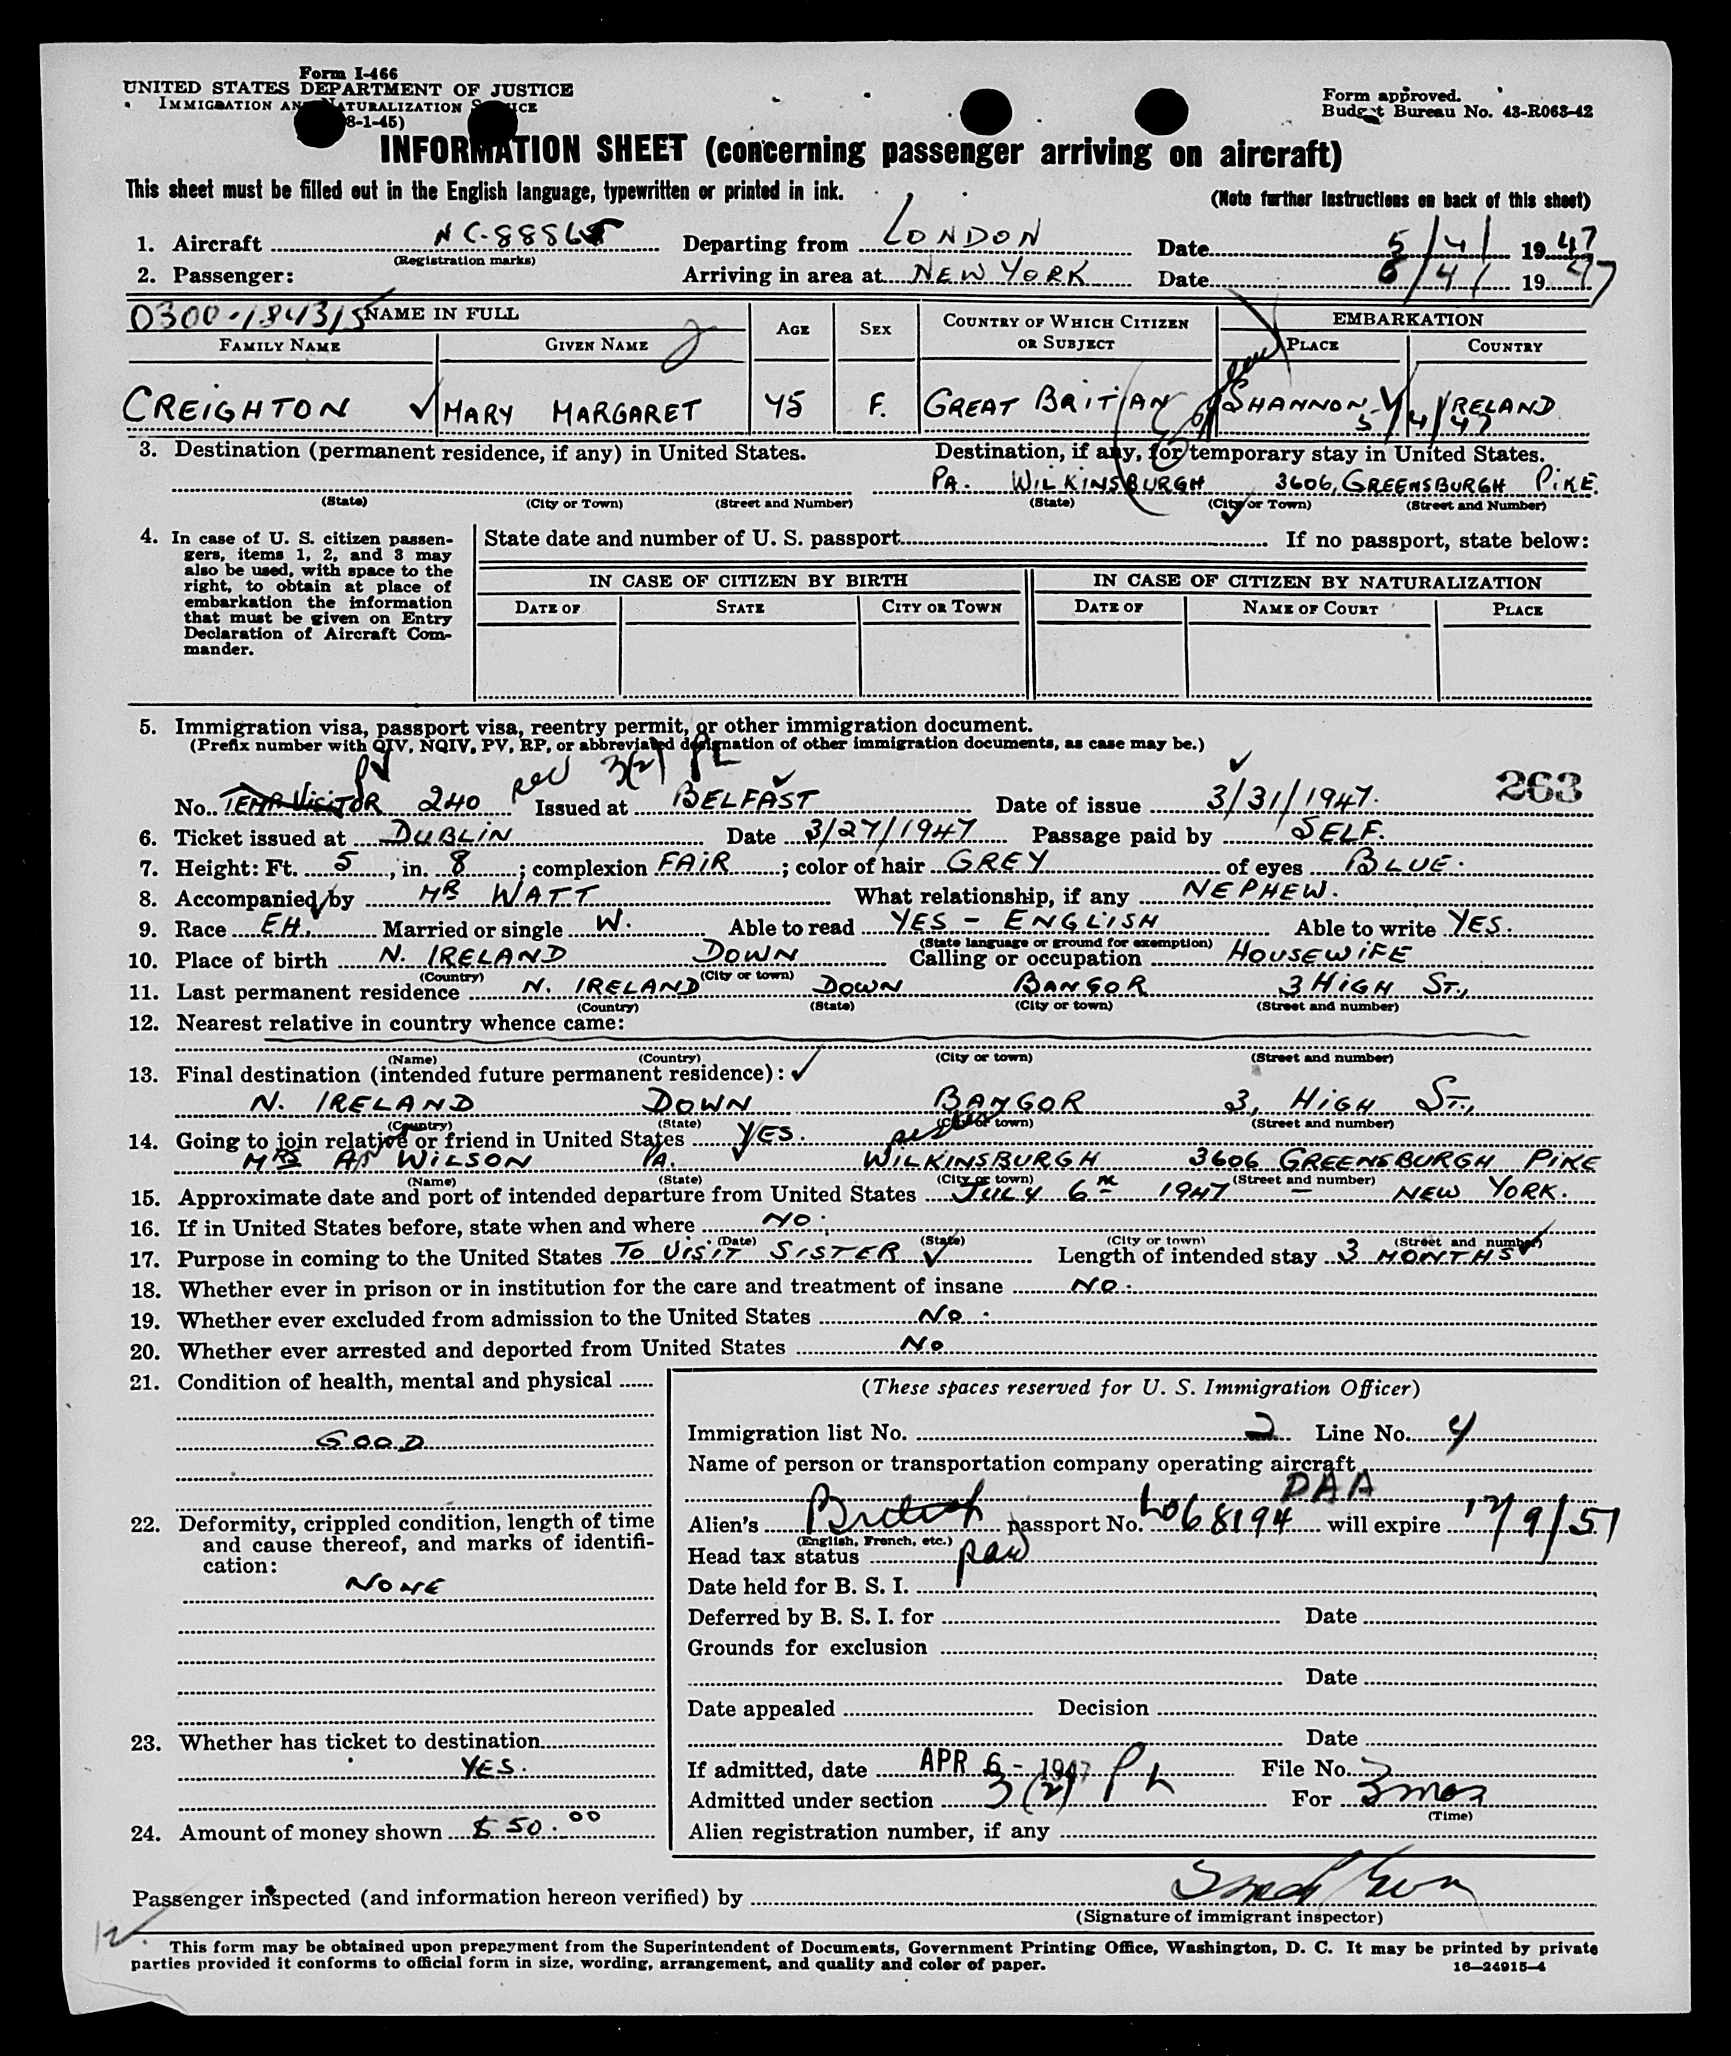 Form I-466
UNITED STATES DEPARTMENT OF JUSTICE
IMMIGRATION AND NATURALIZATION SERVICE
8-1-45)
Form approved.
Budget Bureau No. 43-R063-42
INFORMATION SHEET (concerning passenger arriving on aircraft)
This sheet must be filled out in the English language, typewritten or printed in ink.
(Note further instructions on back of this sheet)
1. Aircraft NC-88865 Departing from LONDON Date 5/4/ 1947
(Registration marks)
2. Passenger: Arriving in area at NEW YORK Date 6/4/ 1947
0300-184315 NAME IN FULL AGE SEX COUNTRY OF WHICH CITIZEN OR SUBJECT EMBARKATION
FAMILY NAME GIVEN NAME PLACE COUNTRY
CREIGHTON MARY MARGARET 45 F. GREAT BRITIAN SHANNON IRELAND
5/4/47
3. Destination (permanent residence, if any) in United States. Destination, if any, for temporary stay in United States.
PA. WILKINSBURGH 3606, GREENSBURGH PIKE.
(State) (City or Town) (Street and Number) (State) (City or Town) (Street and Number)
4. In case of U. S. citizen passengers, items 1, 2, and 3 may also be used, with space to the right, to obtain at place of embarkation the information that must be given on Entry Declaration of Aircraft Commander.
State date and number of U. S. passport If no passport, state below:
IN CASE OF CITIZEN BY BIRTH IN CASE OF CITIZEN BY NATURALIZATION
DATE OF STATE CITY OR TOWN DATE OF NAME OF COURT PLACE
5. Immigration visa, passport visa, reentry permit, or other immigration document.
(Prefix number with QIV, NQIV, PV, RP, or abbreviated designation of other immigration documents, as case may be.)
PV 3(2) PL
263
No. TEMP VISITOR 240 Issued at BELFAST Date of issue 3/31/1947.
6. Ticket issued at DUBLIN Date 3/27/1947 Passage paid by SELF.
7. Height: Ft. 5, in. 8; complexion FAIR; color of hair GREY of eyes BLUE.
8. Accompanied by MR WATT What relationship, if any NEPHEW.
9. Race EH. Married or single W. Able to read YES - ENGLISH Able to write YES.
(State language or ground for exemption)
10. Place of birth N. IRELAND DOWN Calling or occupation HOUSEWIFE
(Country) (City or town)
11. Last permanent residence N. IRELAND DOWN BANGOR 3 HIGH ST.,
(Country) (State) (City or town) (Street and number)
12. Nearest relative in country whence came:
(Name) (Country) (City or town) (Street and number)
13. Final destination (intended future permanent residence):
N. IRELAND DOWN BANGOR 3, HIGH ST.,
(Country) (State) (City or town) (Street and number)
14. Going to join relative or friend in United States YES.
MRS WILSON PA. WILKINSBURGH 3606 GREENSBURGH PIKE
(Name) (State) (City or town) (Street and number)
15. Approximate date and port of intended departure from United States JULY 6TH 1947 - NEW YORK.
16. If in United States before, state when and where NO.
(Date) (State) (City or town) (Street and number)
17. Purpose in coming to the United States TO VISIT SISTER Length of intended stay 3 MONTHS
18. Whether ever in prison or in institution for the care and treatment of insane NO.
19. Whether ever excluded from admission to the United States NO.
20. Whether ever arrested and deported from United States NO
21. Condition of health, mental and physical
GOOD
22. Deformity, crippled condition, length of time and cause thereof, and marks of identification:
NONE
23. Whether has ticket to destination
YES.
24. Amount of money shown $50.00
(These spaces reserved for U. S. Immigration Officer)
Immigration list No. 2 Line No. 4
Name of person or transportation company operating aircraft
PAA
Alien's British passport No. L068194 will expire 12/9/51
(English, French, etc.)
Head tax status
Date held for B. S. I.
Deferred by B. S. I. for Date
Grounds for exclusion
Date
Date appealed Decision
Date
If admitted, date APR 6 - 1947 File No.
Admitted under section 3(2) PL For 3 mos
(Time)
Alien registration number, if any
Passenger inspected (and information hereon verified) by
(Signature of immigrant inspector)
This form may be obtained upon prepayment from the Superintendent of Documents, Government Printing Office, Washington, D. C. It may be printed by private
parties provided it conforms to official form in size, wording, arrangement, and quality and color of paper.
16-24915-4